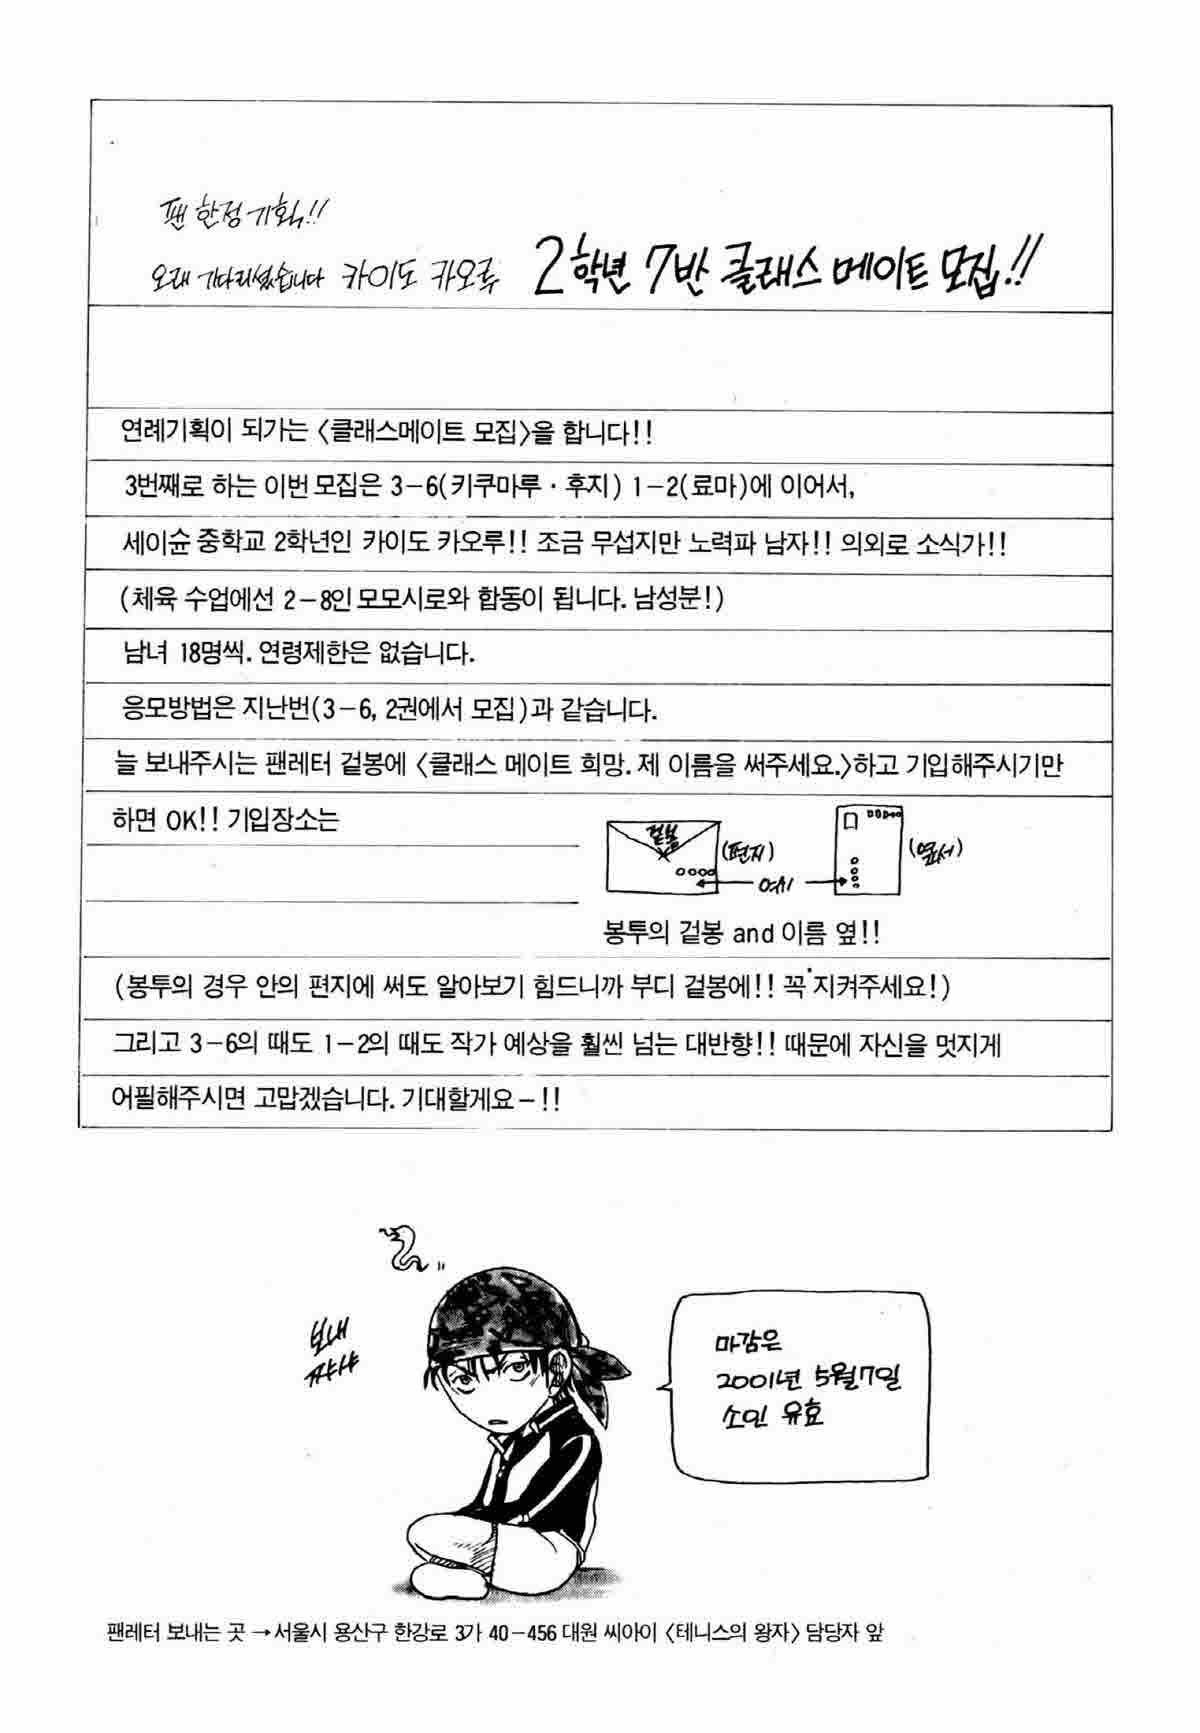 팬 한정 기획!!
오래 기다리셨습니다 카이도 카오루 2학년 7반 클래스 메이트 모집!!
연례기획이 되가는 〈클래스메이트 모집〉을 합니다!!
3번째로 하는 이번 모집은 3-6(키쿠마루·후지) 1-2(료마)에 이어서,
세이슌 중학교 2학년인 카이도 카오루!! 조금 무섭지만 노력파 남자!! 의외로 소식가!!
(체육 수업에선 2-8인 모모시로와 합동이 됩니다. 남성분!)
남녀 18명씩. 연령제한은 없습니다.
응모방법은 지난번(3-6, 2권에서 모집)과 같습니다.
늘 보내주시는 팬레터 겉봉에 〈클래스 메이트 희망. 제 이름을 써주세요.〉하고 기입해주시기만
하면 OK!! 기입장소는
겉봉
(편지)
여시
(엽서)
봉투의 겉봉 and 이름 옆!!
(봉투의 경우 안의 편지에 써도 알아보기 힘드니까 부디 겉봉에!! 꼭 지켜주세요!)
그리고 3-6의 때도 1-2의 때도 작가 예상을 훨씬 넘는 대반향!! 때문에 자신을 멋지게
어필해주시면 고맙겠습니다. 기대할게요-!!
보내
쟈샤
마감은
2001년 5월7일
소인 유효
팬레터 보내는 곳 → 서울시 용산구 한강로 3가 40-456 대원 씨아이 〈테니스의 왕자〉 담당자 앞